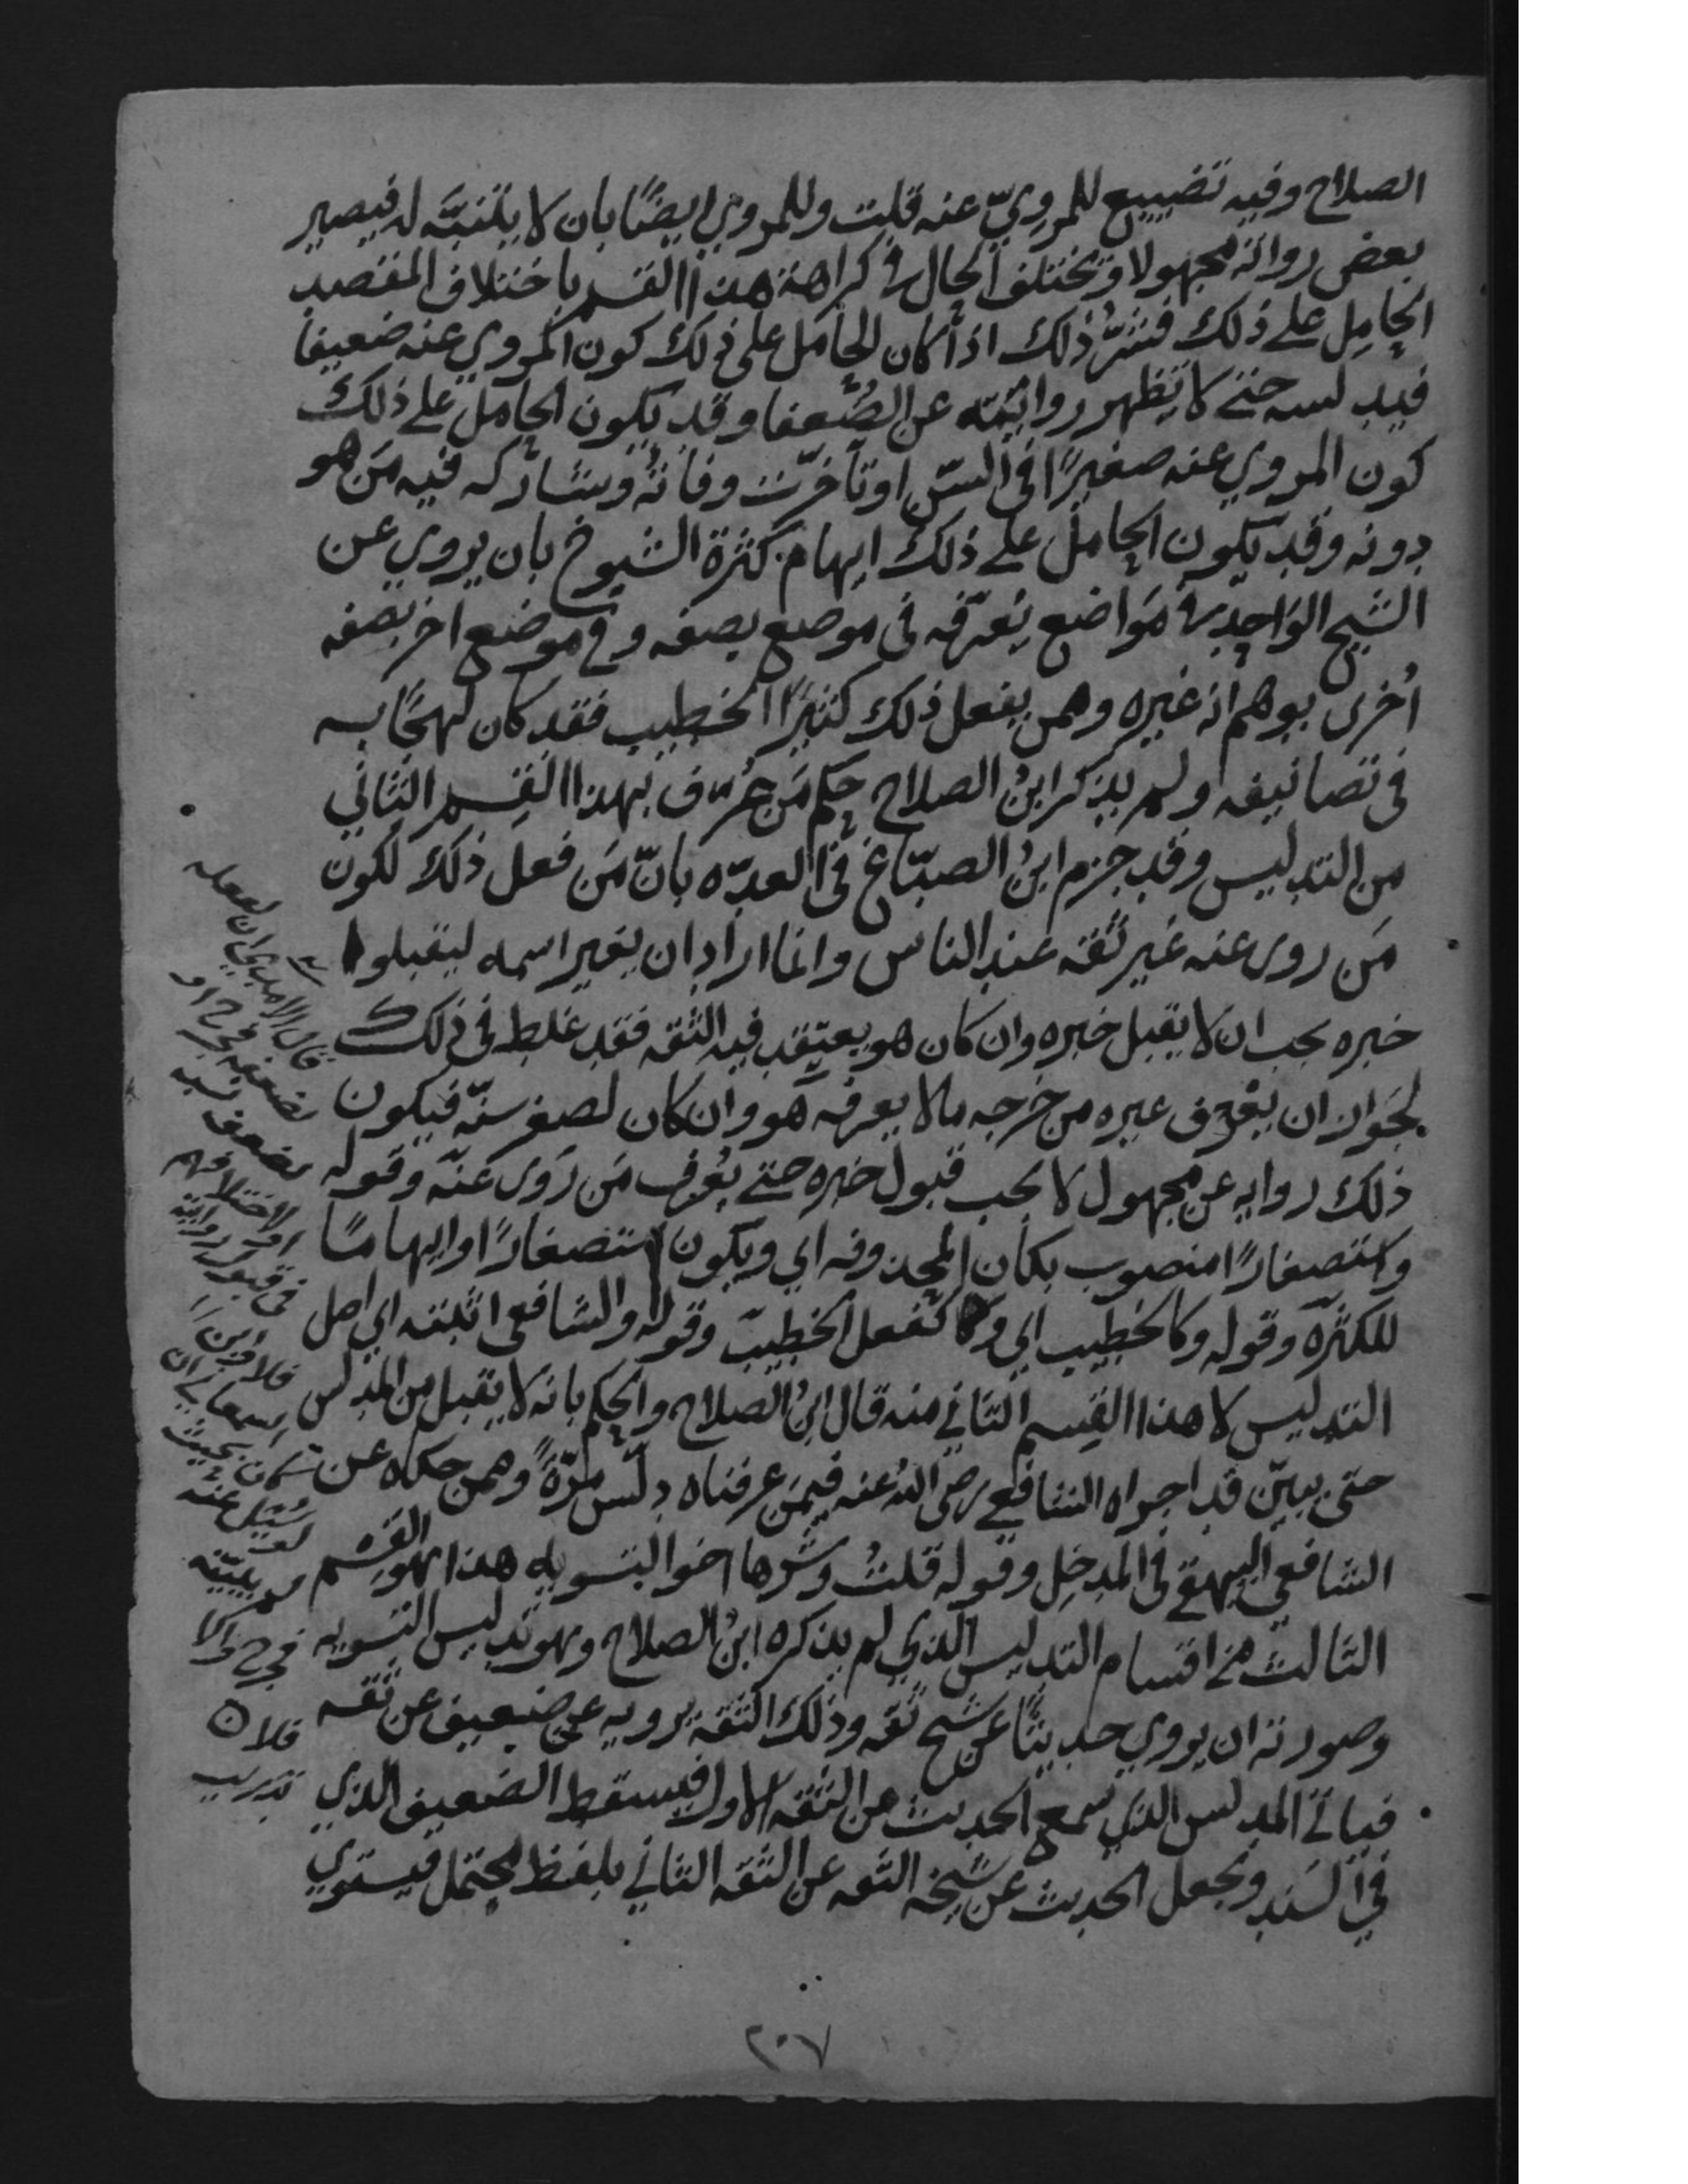 الصلاح وفيه تضييع للمروِيّ عنه قلت وللمروي ايضًا بان لا يتنبّه له فيصير
بعض رواته مجهولا وتختلف الحال في كراهة هذا القسم باختلاف المقصد
الحامِل على ذلك فشرُّ ذلك اذا كان الحامل على ذلك كون المروي عنه ضعيفا
فيدلسه حتى لا تظهر روايته عن الضُّعفا وقد يكون الحامل على ذلك
كون المروي عنه صغيرًا في السّن او تأخرت وفاته وشاركه فيه مَن هو
دونه وقد يكون الحامل على ذلك ايهام كثرة الشيوخ بان يروي عن
الشيخ الواحد في مَواضع يُعرّفه في موضع بصفه وفي موضع اخر بصفه
اُخرى يوهم انه غيره وممن يفعل ذلك كثيرًا الخطيب فقد كان لهجًا به
في تصانيفه ولم يذكر ابنُ الصلاح حكم مَن عُرف بهذا القِسم الثاني
من التدليس وقد جزم ابنُ الصبّاغ في العدّه بانّ مَن فعل ذلك لكون
مَن روى عنه غير ثقه عند الناس وانما اراد ان يغير اسمه ليقبلوا
خبره يجب ان لا يقبل خبره وان كان هو يعتقد فيه الثقه فقد غلط في ذلك
لجَواز ان يعرف غيره من جَرحه ما لا يعرفه هو وان كان لصغر سنّه فيكون
ذلك روايه عن مجهول لا يجب قبول خبره حتى يُعرف مَن رَوى عنه وقوله
واستصغارًا منصوب بكان المحذوفه اي ويكون استصغارًا او ايهامًا
للكثره وقوله وكالخطيب اي وكفعل الخطيب وقوله والشافعي اثبته اي اصل
التدليس لا هذا القِسم الثاني منه قال ابنُ الصلاح والحكم بانه لا يقبل من المدلس
حتى يبيّن قد اجراه الشافعي رضي الله عنه فيمَن عرفناه دلّس مرّةً وممن حكاه عن
الشافعي البيهقي في المدخِل وقوله قلتُ وشرها اخو التسويه هذا هو القسم
الثالث من اقسام التدليس الذي لم يذكره ابنُ الصلاح وهو تدليس التسويه
وصورته ان يروي حديثًا عن شيخ ثقه وذلك الثقة يرويه عن ضعيف عن ثقه
فياتي المدلس الذي سمع الحديث من الثقه الاول فيسقط الضعيف الذي
في السَند ويجعل الحديث عن شيخه الثقه عن الثقه الثاني بلفظ محتمل فيستوي
قال الامدي ان فعله
لضعفه فجرح او
لضعف نسبه
او لاختلافهم
في قبول روايته
فلا وقال ابن
السمعاني ان
كان بحيث
لو سُئل عنه
لم يبيّنه
فجرح والا
فلا
تدريب
٢٠٧